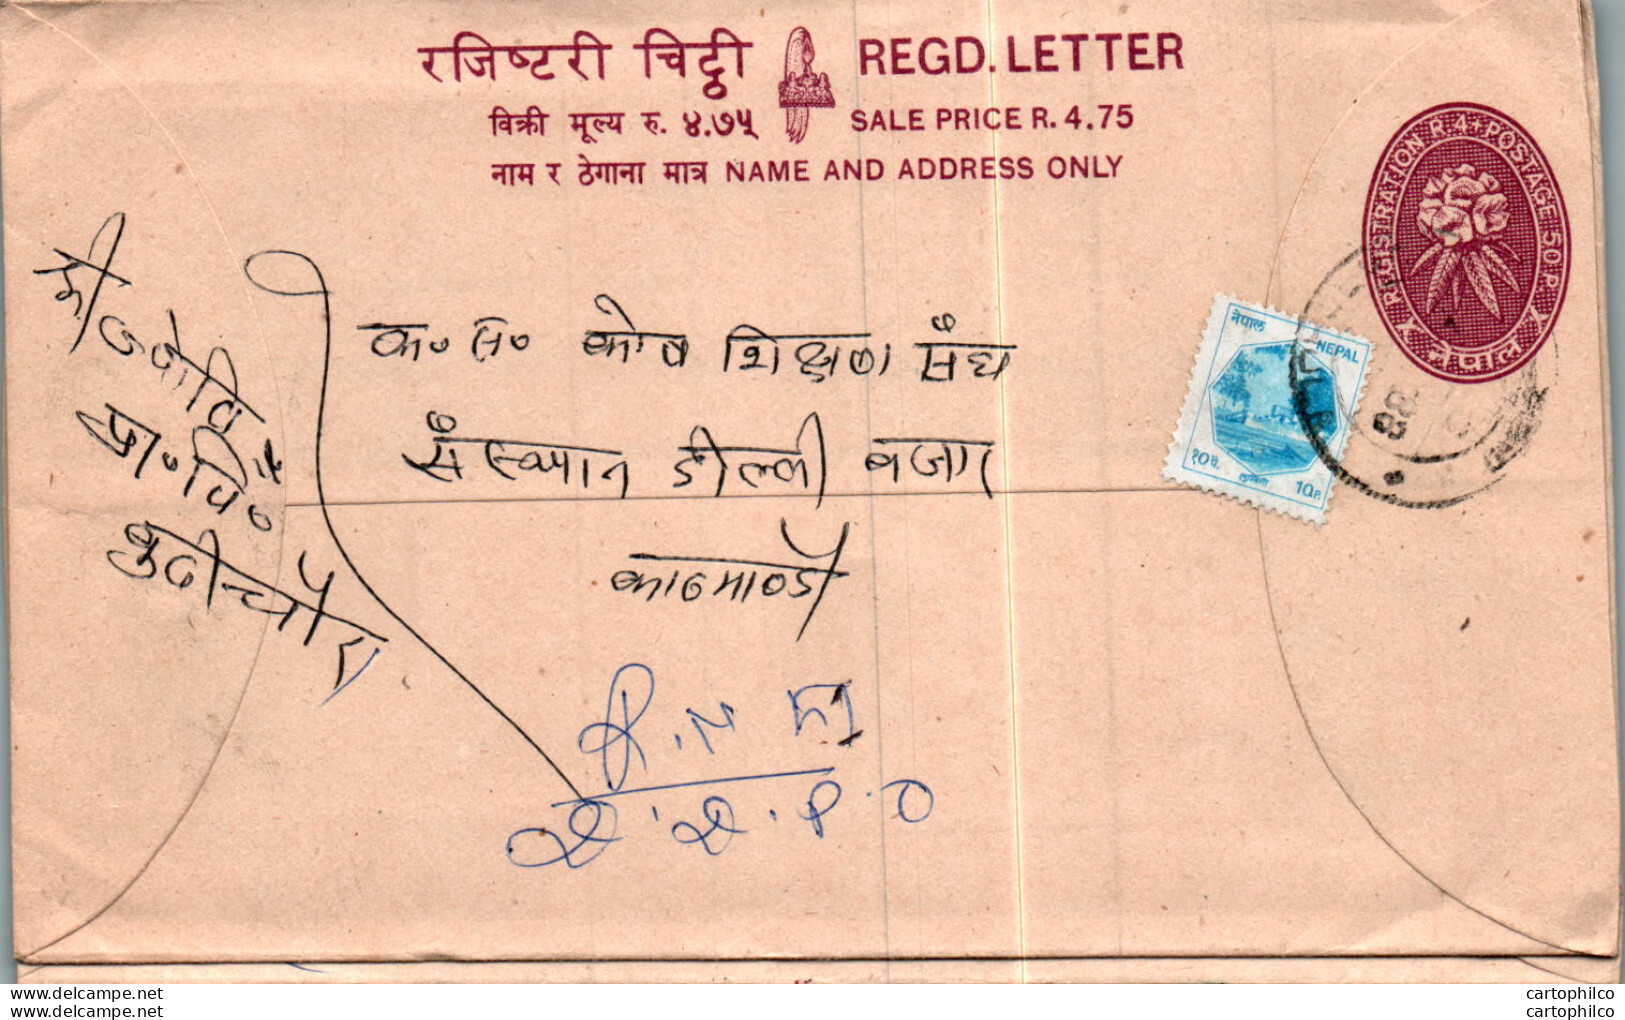 रजिष्टरी चिट्ठी REGD. LETTER
विक्री मूल्य रु. ४.७५ SALE PRICE R. 4.75
नाम र ठेगाना मात्र NAME AND ADDRESS ONLY
REGISTRATION R.4+POSTAGE 50 P.
नेपाल
नेपाल
NEPAL
१० पै.
लुम्बिनी
10 P.
88
क॰ स॰ कोष शिक्षण संघ
संस्थान डील्ली बजार
काठमाण्डौ
श्री
प्रा॰ वि॰
R.N 51
P.O
www.delcampe.net
www.delcampe.net
cartophilco
cartophilco